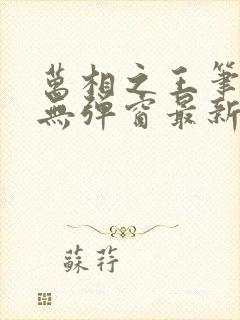 萬相之王筆
無彈窗最新
蘇荇